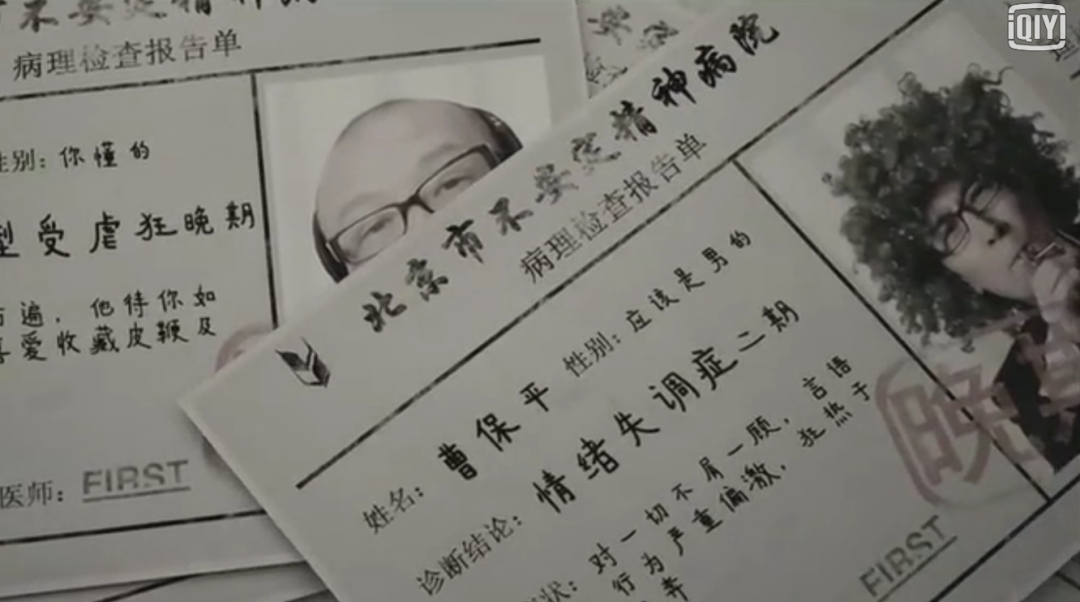 iQIYI
病理检查报告单
性别：你懂的
型受虐狂晚期
遍，他待你如
喜爱收藏皮鞭及
医师：FIRST
北京市不安定精神病院
病理检查报告单
姓名：曹保平 性别：应该是男的
诊断结论：情绪失调症二期
状：对一切不屑一顾，言语
行为严重偏激，狂热于
FIRST
晚